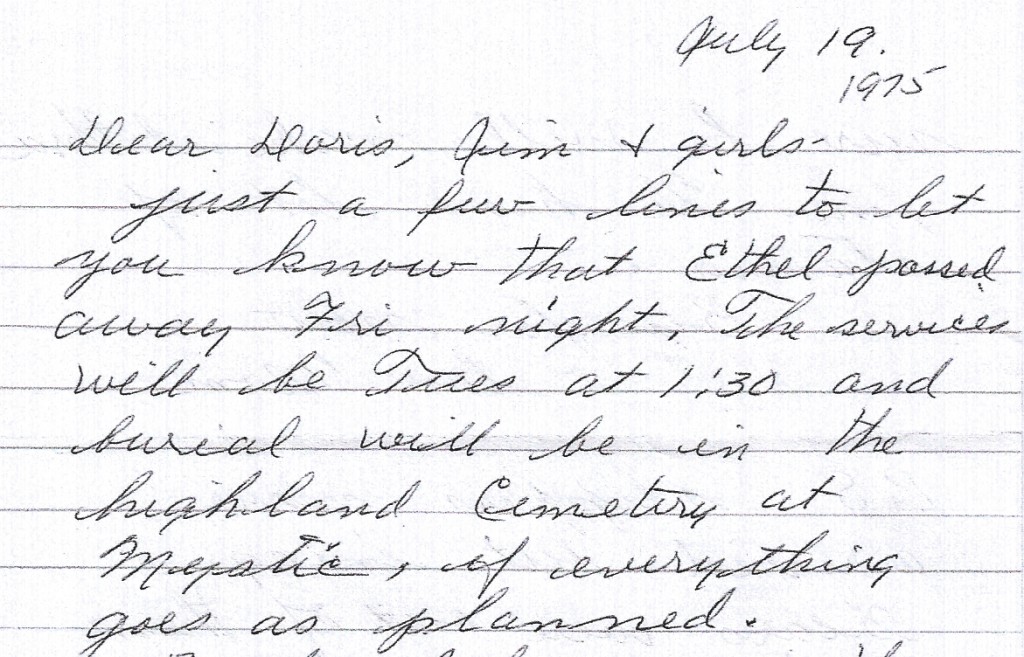 July 19.
1975
Dear Doris, Jim & girls-
just a few lines to let
you know that Ethel passed
away Fri night, The services
will be Tues at 1:30 and
burial will be in the
highland Cemetery at
Mystic, if everything
goes as planned.